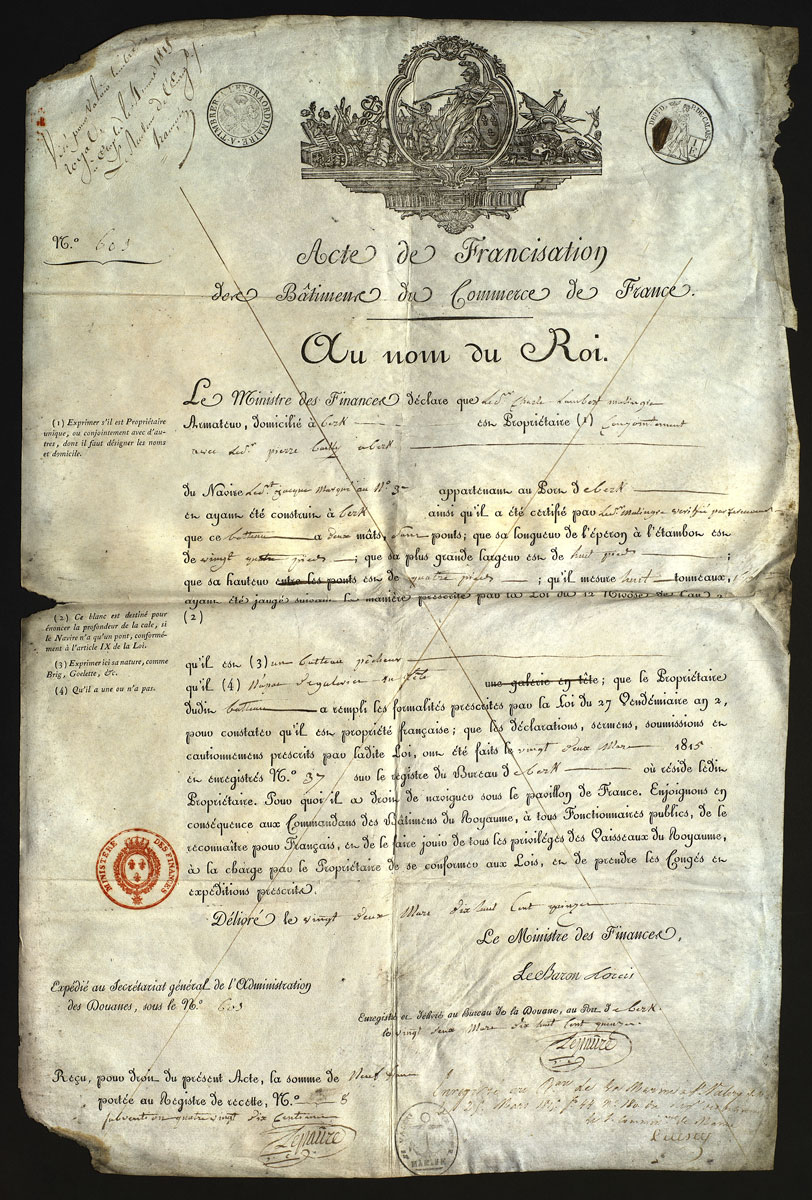 A TIMBRER A L'EXTRAORDINAIRE
N.º 601
Acte de Francisation
des Bâtimens du Commerce de France.
Au nom du Roi.
Le Ministre des Finances déclare que Led.r Charle Lambert malingre
Armateur, domicilié à berk est Propriétaire (1) Conjointement
avec Led.r pierre a berk
(1) Exprimer s'il est Propriétaire
unique, ou conjointement avec d'au-
tres, dont il faut désigner les noms
et domicile.
du Navire au N.º 3 appartenant au Port d berk
et ayant été construit à berk ainsi qu'il a été certifié par Led.r malingre vérifié par
que ce batteau a deux mâts, sans ponts; que sa longueur de l'éperon à l'étambot est
de vingt quatre pieds; que sa plus grande largeur est de huit pieds;
que sa hauteur entre les ponts est de quatre pieds; qu'il mesure huit tonneaux,
ayant été jaugé suivant la manière prescrite par la Loi du 12 Nivose de l'an 2
(2)
(2) Ce blanc est destiné pour
énoncer la profondeur de la cale, si
le Navire n'a qu'un pont, conformé-
ment à l'article IX de la Loi.
(3) Exprimer ici sa nature, comme
Brig, Goelette, &c.
(4) Qu'il a une ou n'a pas.
qu'il est (3) un batteau pêcheur
qu'il (4) N'a pas une galerie en tête; que le Propriétaire
dudit batteau a rempli les formalités prescrites par la Loi du 27 Vendémiaire an 2,
pour constater qu'il est propriété française; que les déclarations, sermens, soumissions et
cautionnemens prescrits par ladite Loi, ont été faits le vingt deux Mars 1815
et enregistrés N.º 37 sur le registre du Bureau d berk où réside ledit
Propriétaire. Pour quoi il a droit de naviguer sous le pavillon de France. Enjoignons en
conséquence aux Commandans des Bâtimens du Royaume, à tous Fonctionnaires publics, de le
reconnaître pour Français, et de le faire jouir de tous les priviléges des Vaisseaux du Royaume,
à la charge par le Propriétaire de se conformer aux Lois, et de prendre les Congés et
expéditions prescrits.
MINISTERE DES FINANCES
Délivré le vingt deux Mars dix huit Cent quinze
Le Ministre des Finances,
Le Baron Louis
Expédié au Secrétariat général de l'Administration
des Douanes, sous le N.º 601
Enregistré et délivré au Bureau de la Douane, au Port d berk
le vingt deux Mars dix huit Cent quinze
Reçu, pour droit du présent Acte, la somme de Neuf francs
portée au Registre de recette, N.º 8
subvention quatre vingt dix Centimes